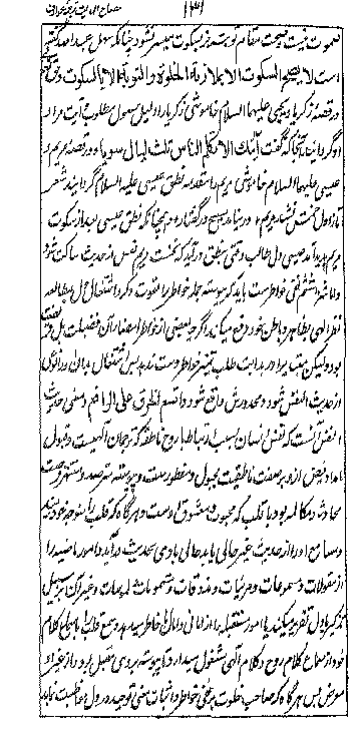 مصباح الهدایت ترجمه عوارف
۱۳۱
نصموت نیست و صحت مقام توبه جز بسکوت میسر نشود چنانکه سهل عبدالله گفته
است لا یصح السکوت الا بملازمة الخلوة و التوبة الا بالسکوت و حق تعالی
در قصه زکریا و یحیی علیهما السلام خاموشی زکریا را دلیل حصول مطلوب و آیت مراد
او گردانید آنجا که گفت آیتک الا تکلم الناس ثلث لیال سویا و در قصه مریم و
عیسی علیهما السلام خاموشی مریم را مقدمه نطق عیسی علیه السلام گردانید
تا اول نخست مریم در نیامد مسیح در گفتار و همچنانکه نطق عیسی بعد از سکوت
مریم پدید آمد عیسی دل طالب وقتی بنطق در آید که نخست مریم نفس از حدیث ساکت شود
و اما شرط ششم نفی خواطرست باید که پیوسته جمله خواطر را بقوت ذکر و اشتغال دل بمطالعه
نظر الهی بظاهر و باطن خود دفع میکند اگرچه بعضی از خواطر
بود ولیکن مبتدی را در بدایت طلب تمییز خواطر دست ندهد پس اشتغال بدان او را
از حدیث النفس شود و محذور واقع شود و اقسم لطرق علی الذاکر و معنی حدیث
النفس آنست که نفس انسان بسبب ارتباط با روح ناطقه که ترجمان الهیست و قبول
امداد فیض از او بر صفت ناطقیت مجبول و مفطورست و پیوسته مترصد و منتهز فرصت
محادثه و مکالمه بود با قلب که محبوب و معشوق اوست و هرگاه که قلب را متوجه خود بیند
و مسامع او را از حدیث غیر خالی یابد حالی با وی بحدیث در آید و امور ماضیه را
از مقولات و مسموعات و مرئیات و مذوقات و مشمومات و ملموسات و غیر آن بر سبیل
تذکیر با دل تقریر میکند یا امور مستقبله را از امانی و آمال بخاطر میدهد و سمع قلب را باستماع کلام
خود از سماع کلام روح و کلام الهی مشغول میدارد تا پیوسته بروی مقبل بود و از غیر او
معرض پس هرگاه که صاحب خلوت بر نفی خواطر و اثبات معنی توحید در دل مواظبت نماید